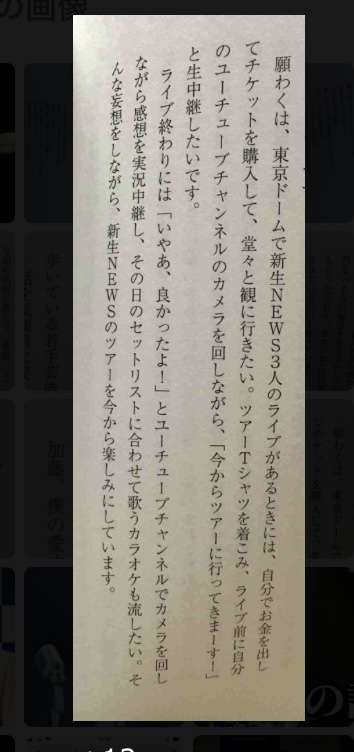 願わくは、東京ドームで新生NEWS3人のライブがあるときには、自分でお金を出し
てチケットを購入して、堂々と観に行きたい。ツアーTシャツを着こみ、ライブ前に自分
のユーチューブチャンネルのカメラを回しながら、「今からツアーに行ってきまーす！」
と生中継したいです。
ライブ終わりには「いやあ、良かったよ！」とユーチューブチャンネルでカメラを回し
ながら感想を実況中継し、その日のセットリストに合わせて歌うカラオケも流したい。そ
んな妄想をしながら、新生NEWSのツアーを今から楽しみにしています。